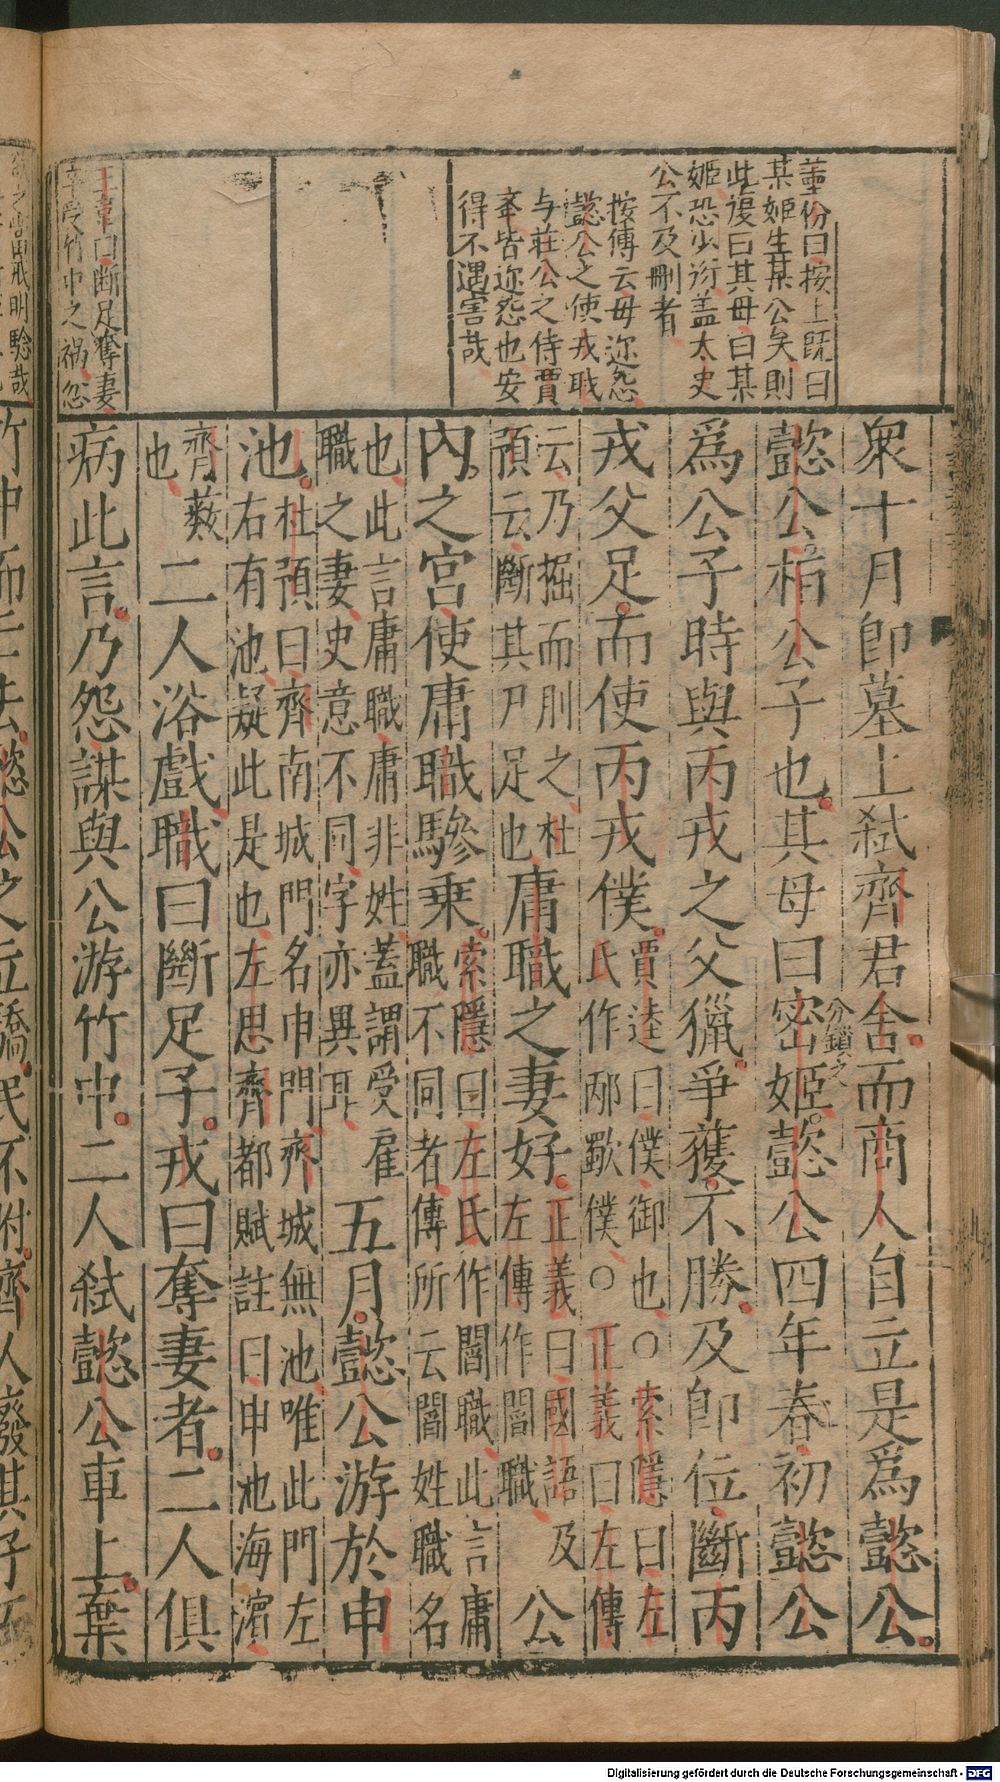 董份曰按上旣曰
某姬生某公矣則
此復曰其母曰某
姬恐少衍盖太史
公不及刪者
按傳云毋迩怨
懿公之使戎职
与莊公之侍賈
举皆迩怨也安
得不遇害哉
王韋曰斷足奪妻
卒受竹中之禍怨
衆十月卽墓上弑齊君舍而商人自立是爲懿公
懿公桓公子也其母曰密姬懿公四年春初懿公
分鎖之
爲公子時與丙戎之父獵爭獲不勝及卽位斷丙
戎父足而使丙戎僕賈逵曰僕御也○索隱曰左
氏作邴歜僕○正義曰左傳
云乃掘而刖之杜
預云斷其尸足也庸職之妻好正義曰國語及
左傳作閻職公
內之宮使庸職驂乗索隱曰左氏作閻職此言庸
職不同者傳所云閻姓職名
也此言庸職庸非姓蓋謂受雇
職之妻史意不同字亦異耳五月懿公游於申
池杜預曰齊南城門名申門齊城無池唯此門左
右有池疑此是也左思齊都賦註曰申池海濵
齊藪
也二人浴戲職曰斷足子戎曰奪妻者二人俱
病此言乃怨謀與公游竹中二人弑懿公車上棄
竹中而亡去懿公之立驕民不附齊人廢其子而
Digitalisierung gefördert durch die Deutsche Forschungsgemeinschaft - DFG